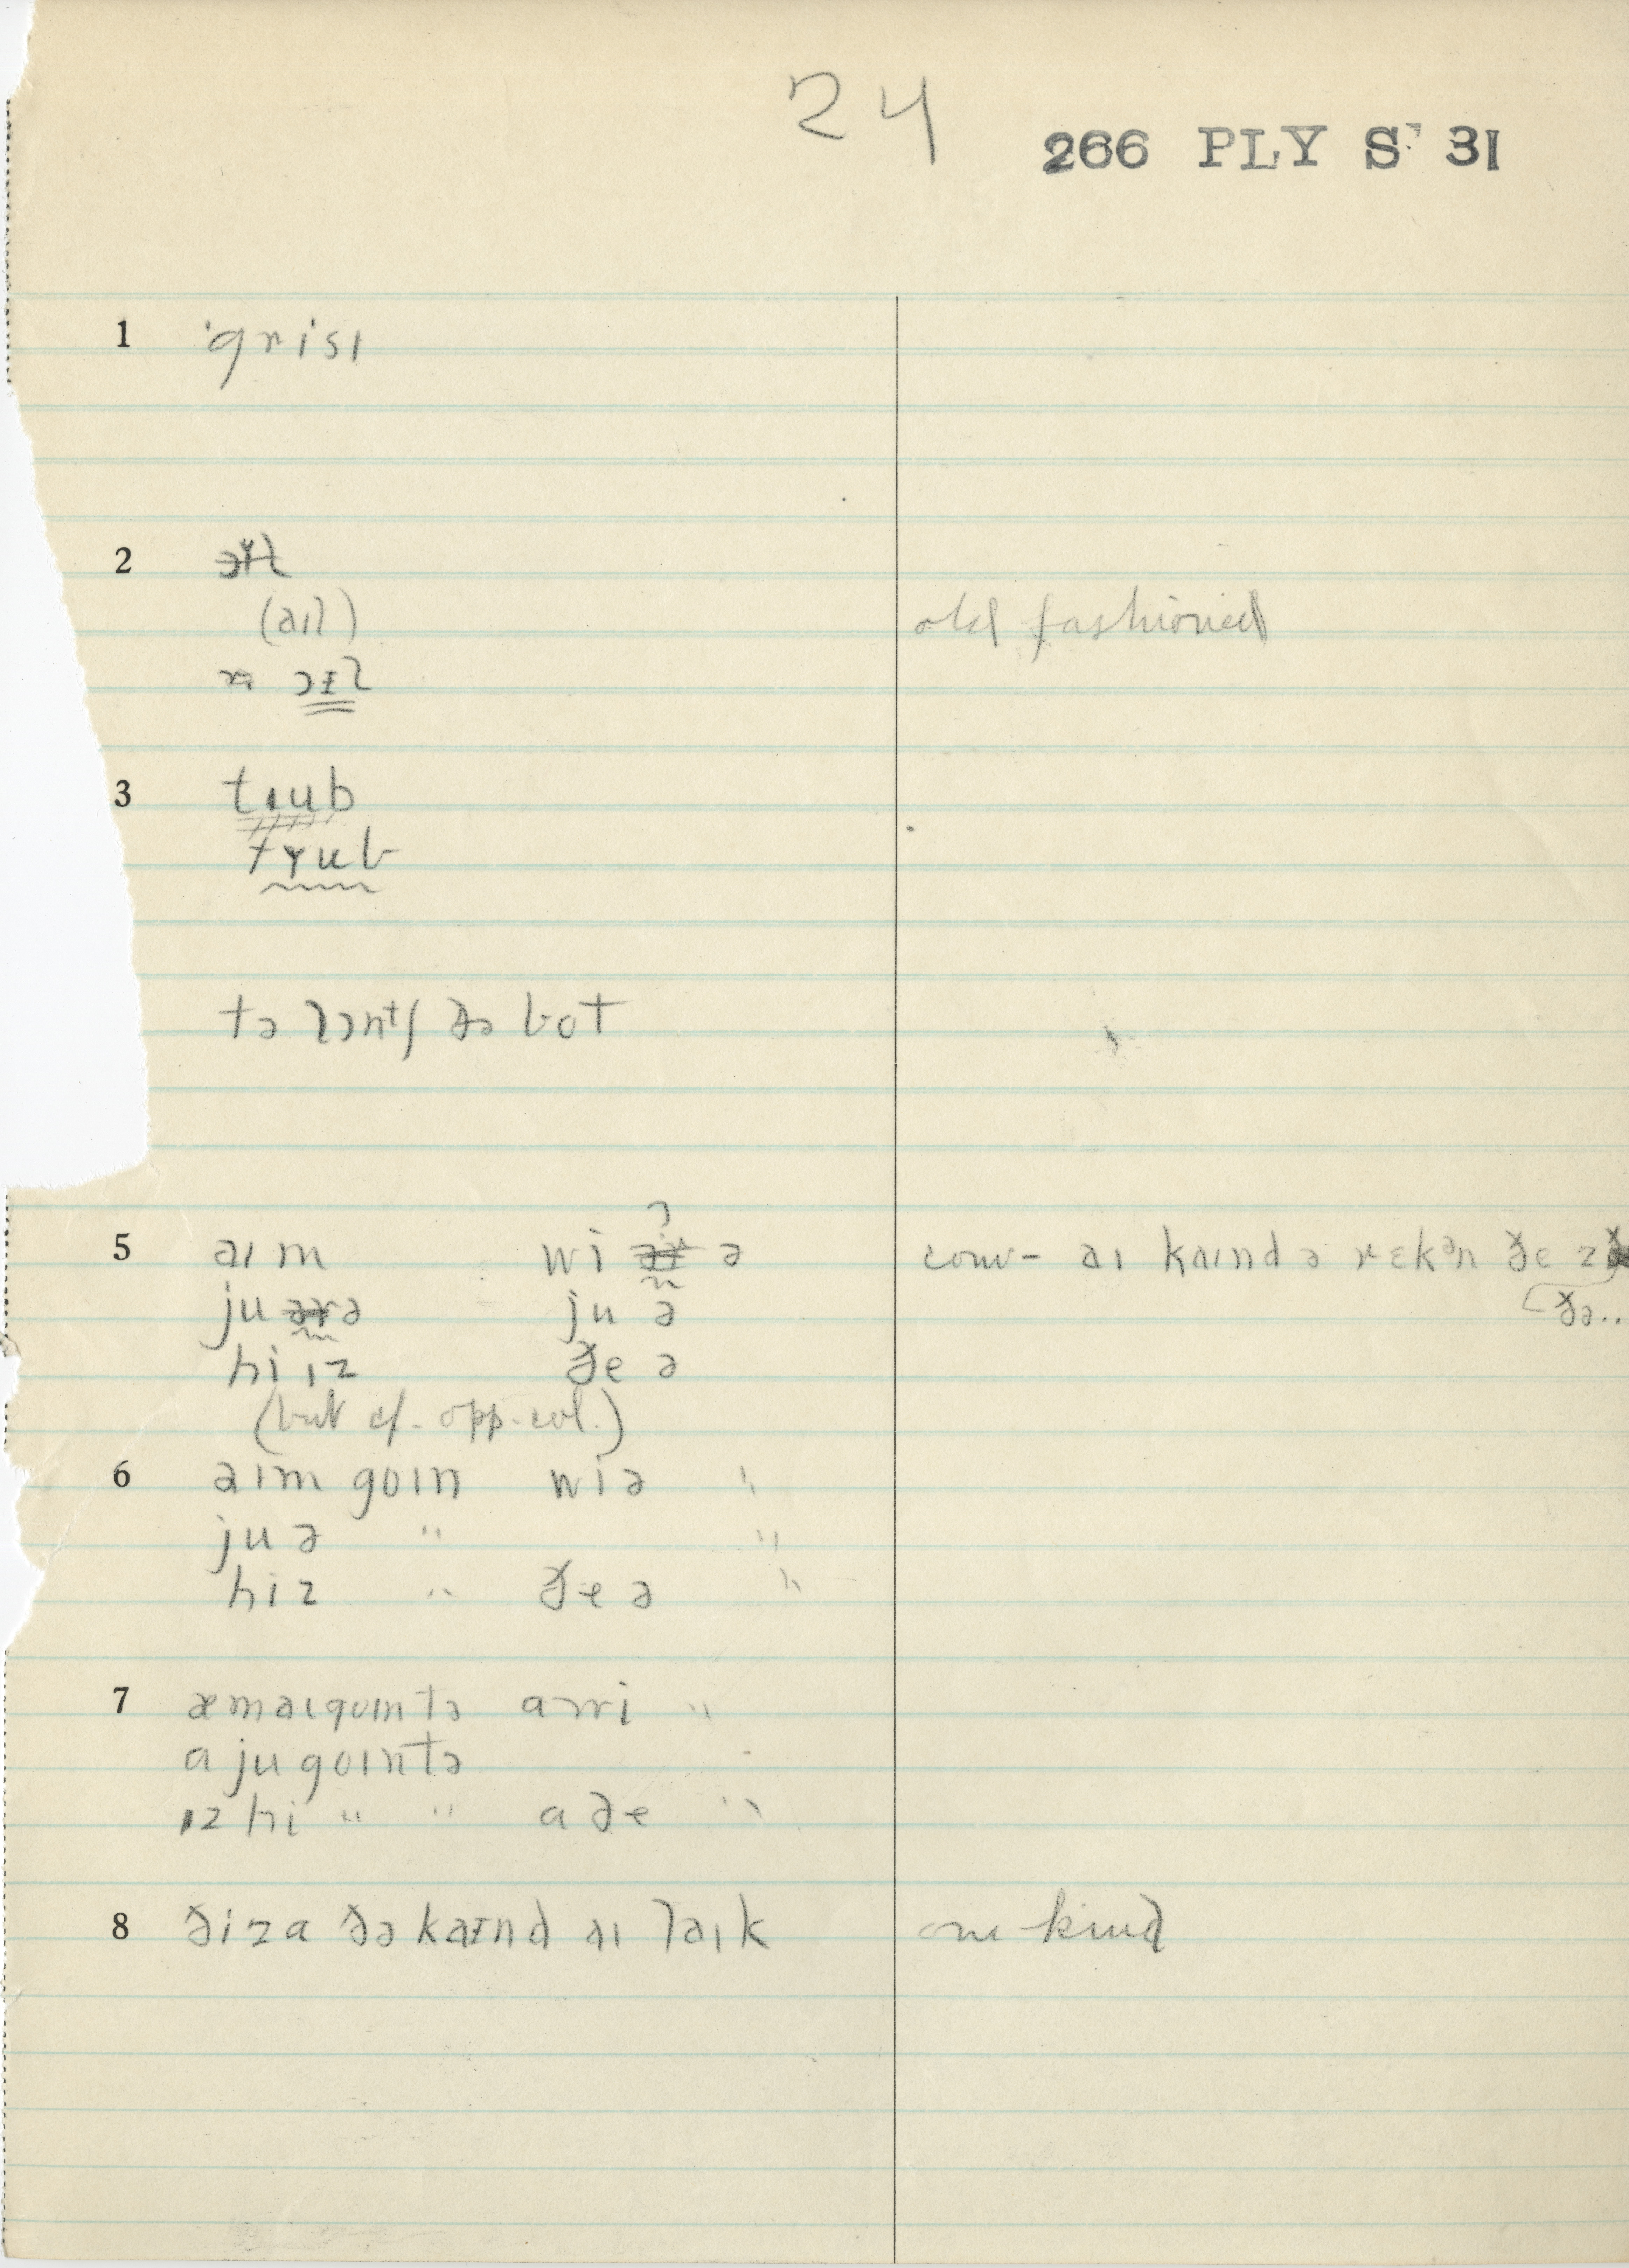 24
266 PLY S' 31
1 ˈgrisɪ
2
(aɪl) old fashioned
ɔɪl
3 tɪub
tɣub
tə lɔntʃ ðə bot
5 aɪm wi ə conv- aɪ kaɪnd ə rɛkᵊn ðe z
ju ə ju ə ðə..
hi ɪz ðe ə
(but cf. opp. col.)
6 aɪm goɪn wi ə "
ju ə " "
hi z " ðe ə "
7 æm aɪ goɪn tə a wi "
a ju goɪn tə
ɪz hi " " a ðe "
8 ði z a ðə kaɪnd aɪ laɪk one kind